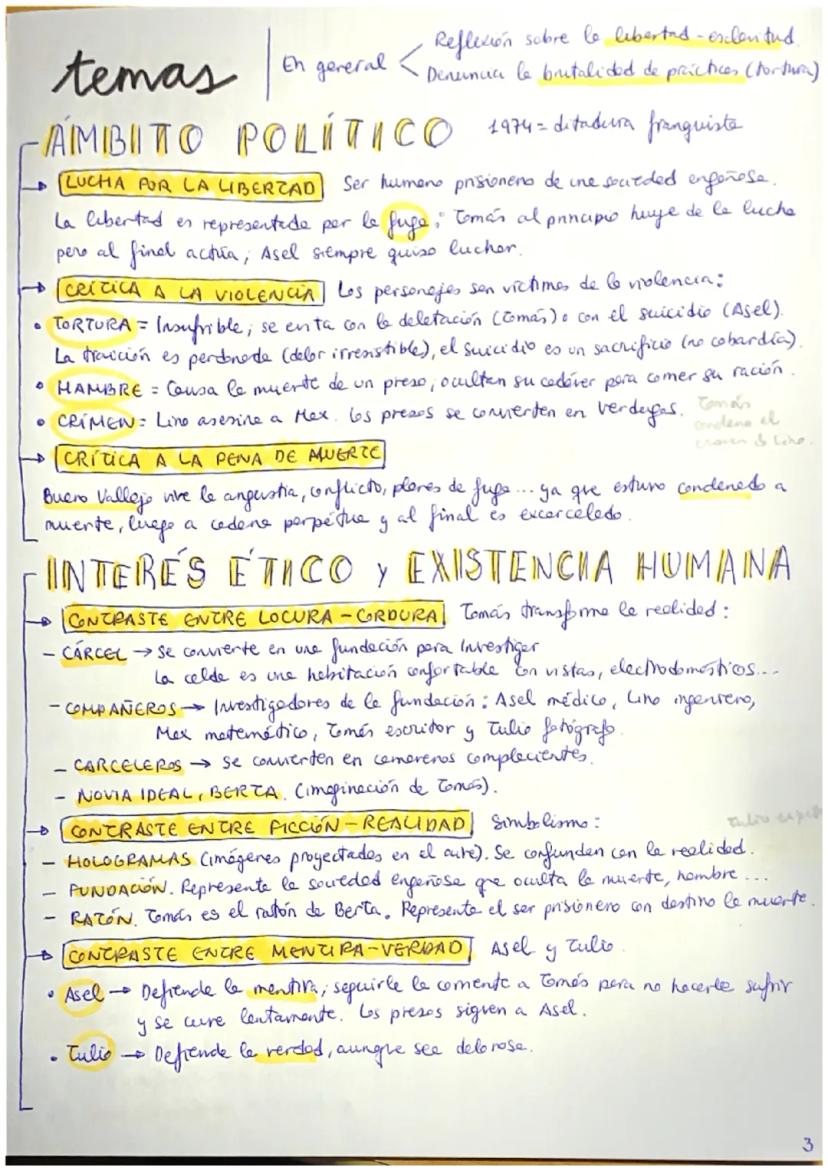 temas
En general < Reflexión sobre la libertad-esclavitud.
Denuncia la brutalidad de prácticas (tortura)
ÁMBITO POLÍTICO 1974 = ditadura franquista
→ LUCHA POR LA LIBERTAD Ser humano prisionero de una sociedad engañosa.
La libertad es representada por la fuga; Tomás al principio huye de la lucha
pero al final actúa; Asel siempre quiso luchar.
→ CRÍTICA A LA VIOLENCIA Los personajes son víctimas de la violencia:
• TORTURA = Insufrible; se evita con la deletación (Tomás) o con el suicidio (Asel).
La traición es perdonada (dolor irresistible), el suicidio es un sacrificio (no cobardía).
• HAMBRE = Causa la muerte de un preso, ocultan su cadáver para comer su ración.
• CRÍMEN = Lino asesina a Max. Los presos se convierten en verdugos. Tomás
condena el
crimen de Lino.
→ CRÍTICA A LA PENA DE MUERTE
Buero Vallejo vive la angustia, conflicto, planes de fuga... ya que estuvo condenado a
muerte, luego a cadena perpétua y al final es excarcelado.
INTERÉS ÉTICO Y EXISTENCIA HUMANA
→ CONTRASTE ENTRE LOCURA-CORDURA Tomás transforma la realidad:
- CÁRCEL → Se convierte en una fundación para Investigar
La celda es una habitación confortable con vistas, electrodomésticos...
- COMPAÑEROS → Investigadores de la fundación: Asel médico, Lino ingeniero,
Max matemático, Tomás escritor y Tulio fotógrafo.
- CARCELEROS → Se convierten en camareros complacientes.
- NOVIA IDEAL, BERTA. (imaginación de Tomás).
→ CONTRASTE ENTRE FICCIÓN-REALIDAD Simbolismo:
- HOLOGRAMAS (imágenes proyectadas en el aire). Se confunden con la realidad.
- FUNDACIÓN. Representa la sociedad engañosa que oculta la muerte, hambre...
- RATÓN. Tomás es el ratón de Berta. Representa el ser prisionero con destino la muerte.
→ CONTRASTE ENTRE MENTIRA-VERDAD Asel y Tulio.
• Asel → Defiende la mentira; seguirle la corriente a Tomás para no hacerle sufrir
y se cure lentamente. Los presos siguen a Asel.
• Tulio → Defiende la verdad, aunque sea dolorosa.
3